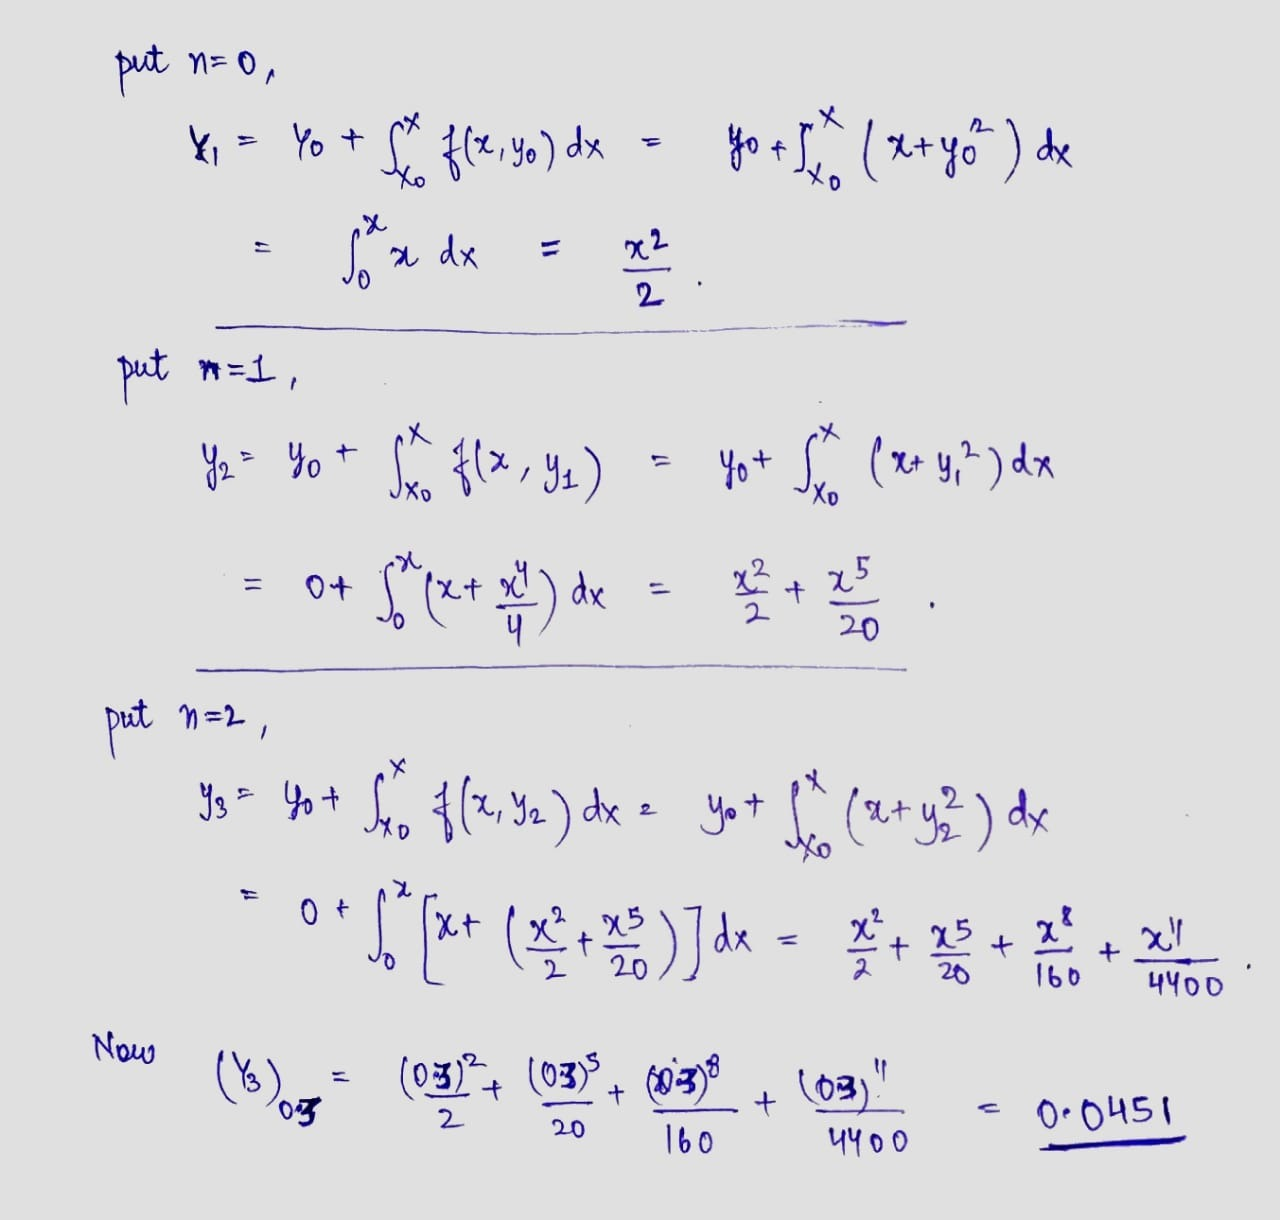 put n=0,
y₁ = y₀ + ∫ₓ₀ˣ f(x,y₀) dx = y₀ + ∫ₓ₀ˣ (x+y₀²) dx
= ∫₀ˣ x dx = x²/2 .
put n=1,
y₂ = y₀ + ∫ₓ₀ˣ f(x, y₁) = y₀ + ∫ₓ₀ˣ (x+ y₁²) dx
= 0+ ∫₀ˣ (x+ x⁴/4) dx = x²/2 + x⁵/20 .
put n=2,
y₃ = y₀ + ∫ₓ₀ˣ f(x, y₂) dx = y₀ + ∫ₓ₀ˣ (x+ y₂²) dx
= 0 + ∫₀ˣ [x+ (x²/2 + x⁵/20)] dx = x²/2 + x⁵/20 + x⁸/160 + x¹¹/4400 .
Now (y₃)₀₃ = (03)²/2 + (03)⁵/20 + (03)⁸/160 + (03)¹¹/4400 = 0.0451